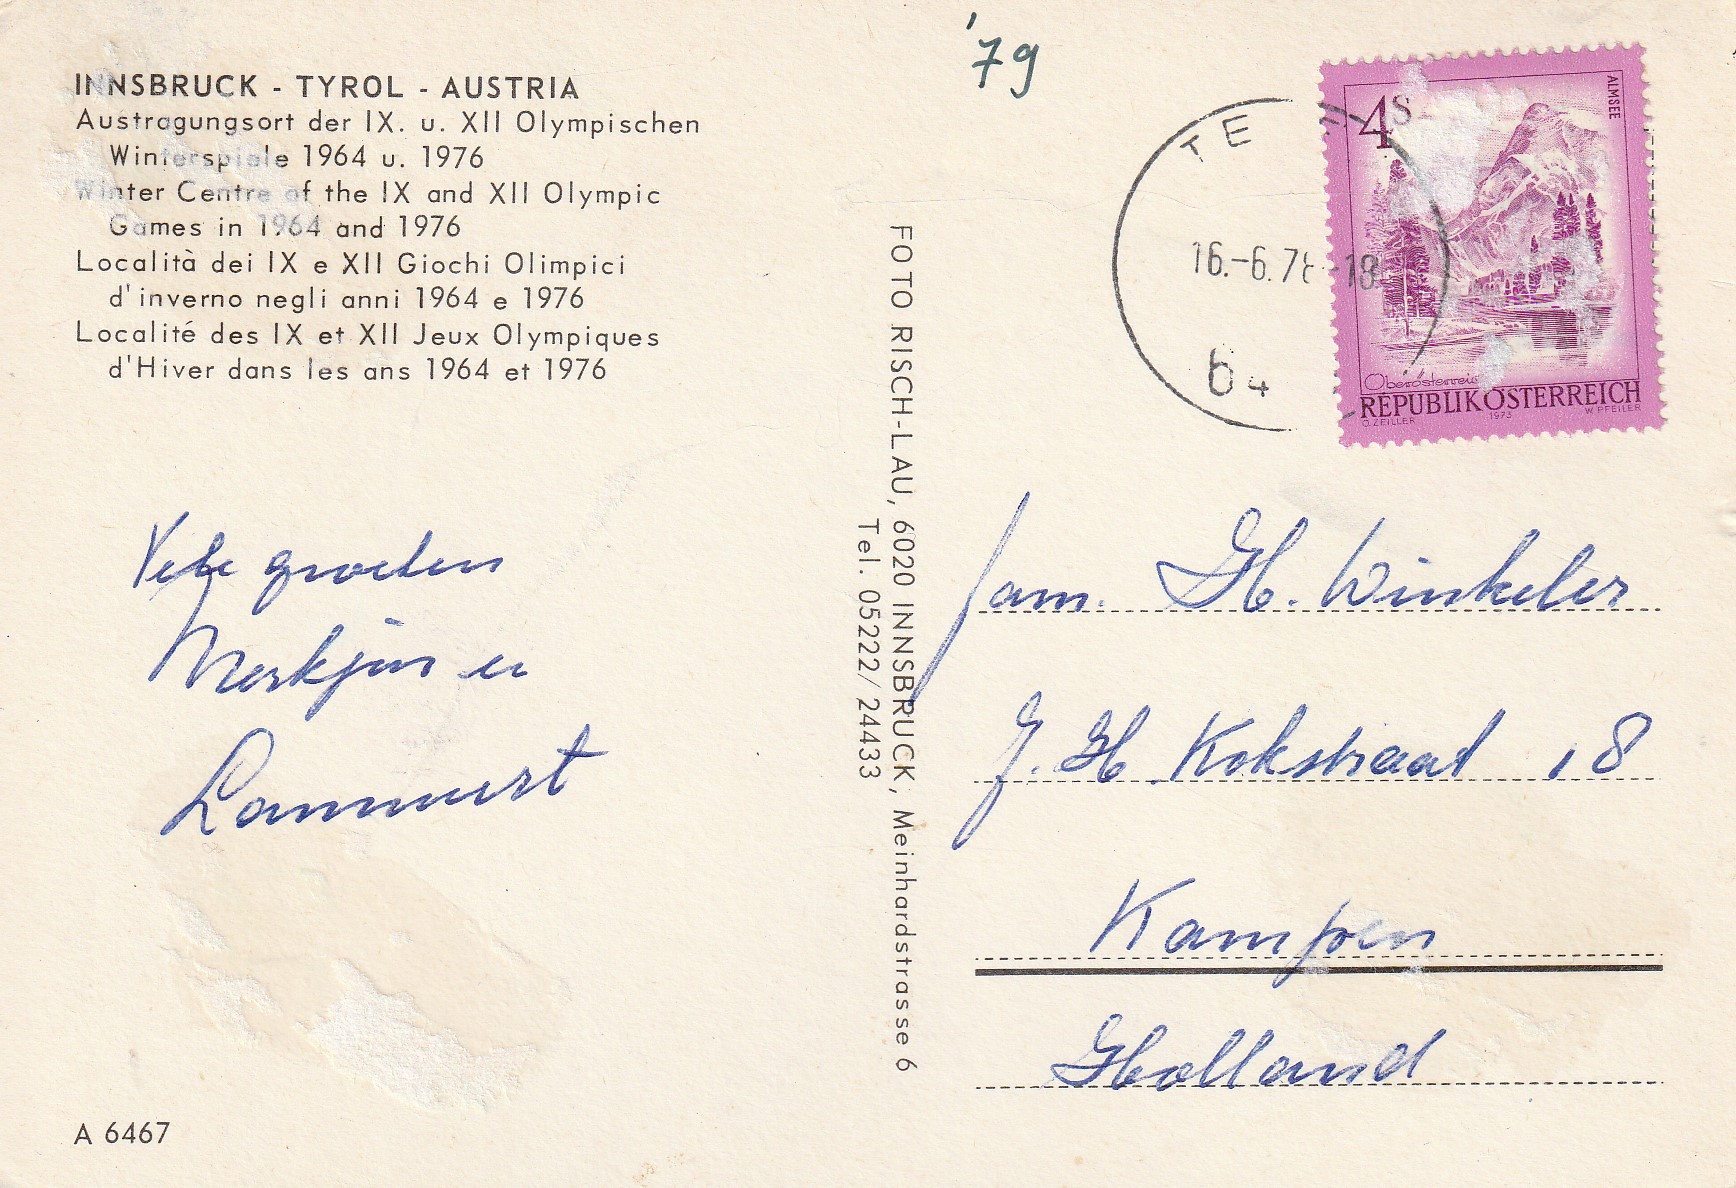 INNSBRUCK - TYROL - AUSTRIA
Austragungsort der IX. u. XII Olympischen
Winterspiele 1964 u. 1976
Winter Centre of the IX and XII Olympic
Games in 1964 and 1976
Località dei IX e XII Giochi Olimpici
d'inverno negli anni 1964 e 1976
Localité des IX et XII Jeux Olympiques
d'Hiver dans les ans 1964 et 1976
groeten
Lammert
A 6467
FOTO RISCH-LAU, 6020 INNSBRUCK, Meinhardstrasse 6
Tel. 05222/24433
'79
TE
16.-6.7 -18
6 4
4 S
ALMSEE
Oberösterreich
REPUBLIK ÖSTERREICH
O. ZEILLER 1973 W. PFEILER
fam. H. Winkeler
J. H. Kokstraat 18
Kampen
Holland